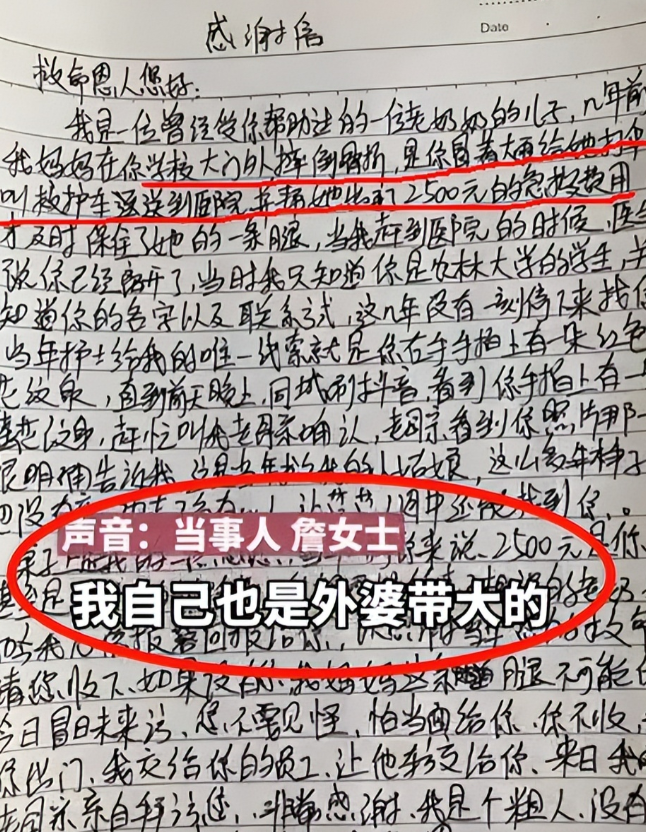 感谢信
Date
救命恩人您好:
我是一位曾经受你帮助过的一位老奶奶的儿子,几年前
我妈妈在你学校大门外摔倒骨折,是你冒着大雨给她打伞
叫救护车送到医院,并帮她出了2500元的急救费用
才及时保全了她的一条腿,当我赶到医院的时候,医生
说你已经离开了,当时我只知道你是农林大学的学生,并
知道你的名字以及联系方式,这几年没有一刻停下来找你
当年护士给我的唯一线索就是你右手手指上有一朵红色
花纹身,直到前天晚上,同城刷抖音,看到你手指上有一
花纹身,赶忙叫我老母亲确认,老母亲看到你照片那一
很明确告诉我,这是当年救我的小姑娘,这么多年
声音:当事人 詹女士
来说,2500元是你
我自己也是外婆带大的
请您收下,如果没有你,我妈妈这条腿不可能
今日冒昧来访,您不要见怪,怕当面给你,你不收,
你出门,我交给你的员工,让他转交给你,来日我
老母亲亲自拜访您,非常感谢,我是个粗人,没有